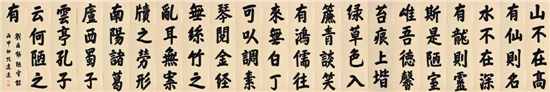 山不在高
有仙則名
水不在深
有龍則靈
斯是陋室
惟吾德馨
苔痕上堦
綠草色入
簾青談笑
有鴻儒往
來無白丁
可以調素
琴閱金經
無絲竹之
亂耳無案
牘之勞形
南陽諸葛
廬西蜀子
雲亭孔子
云何陋之
有
劉禹錫陋室銘
丙申秋